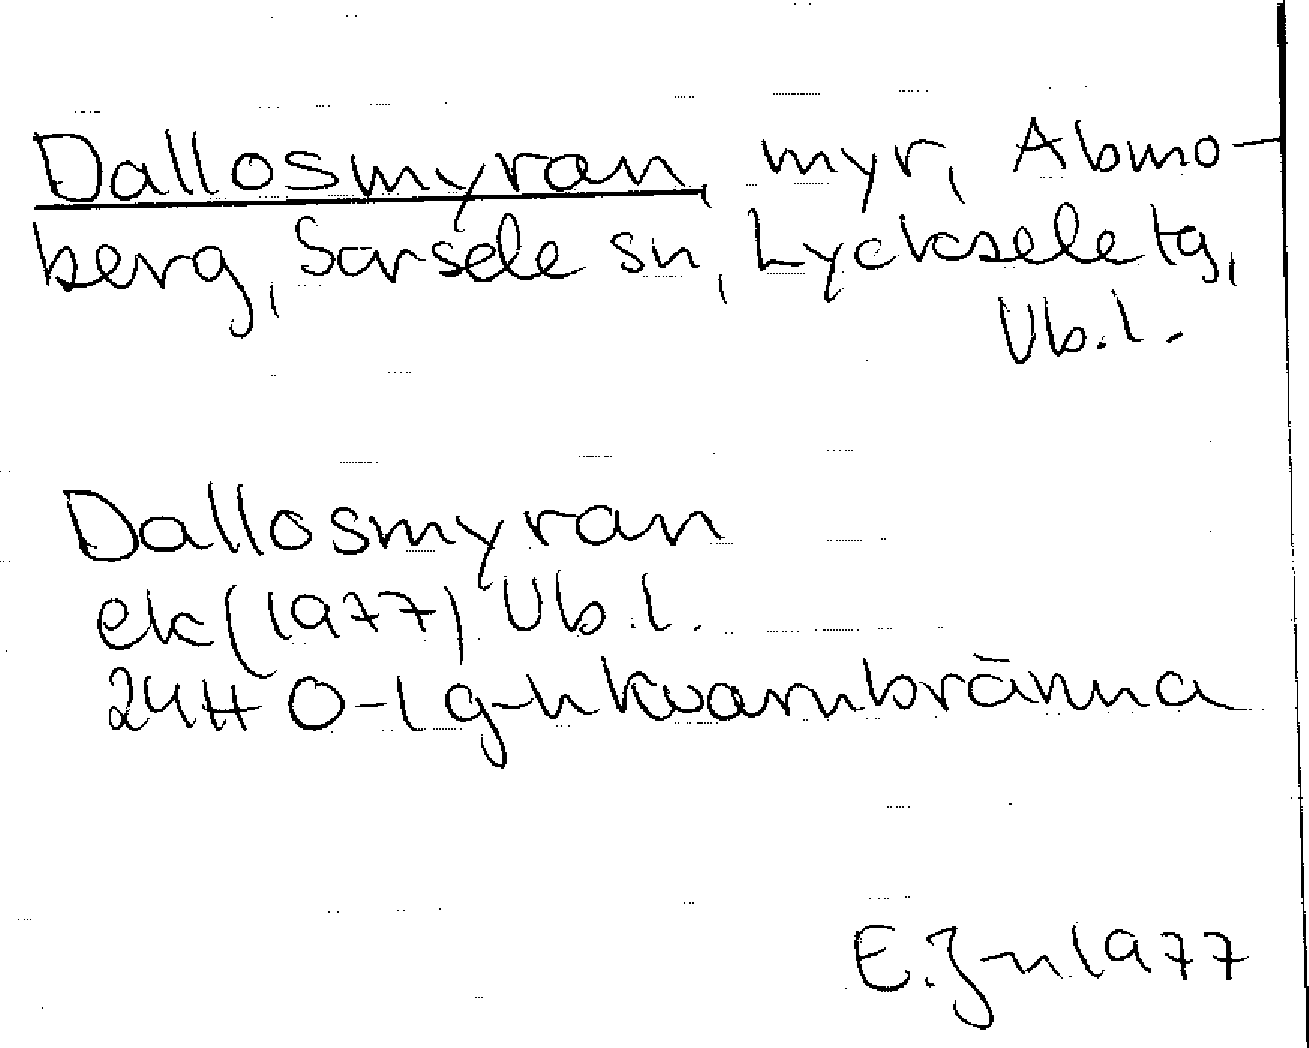 Dallosmyran, myr, Abmo-
berg, Sorsele sn, Lycksele tg,
Vb.l.
Dallosmyran
ek (1977) Vb.l.
24H 0-1 g-h Kvarnbränna
E. J-n 1977